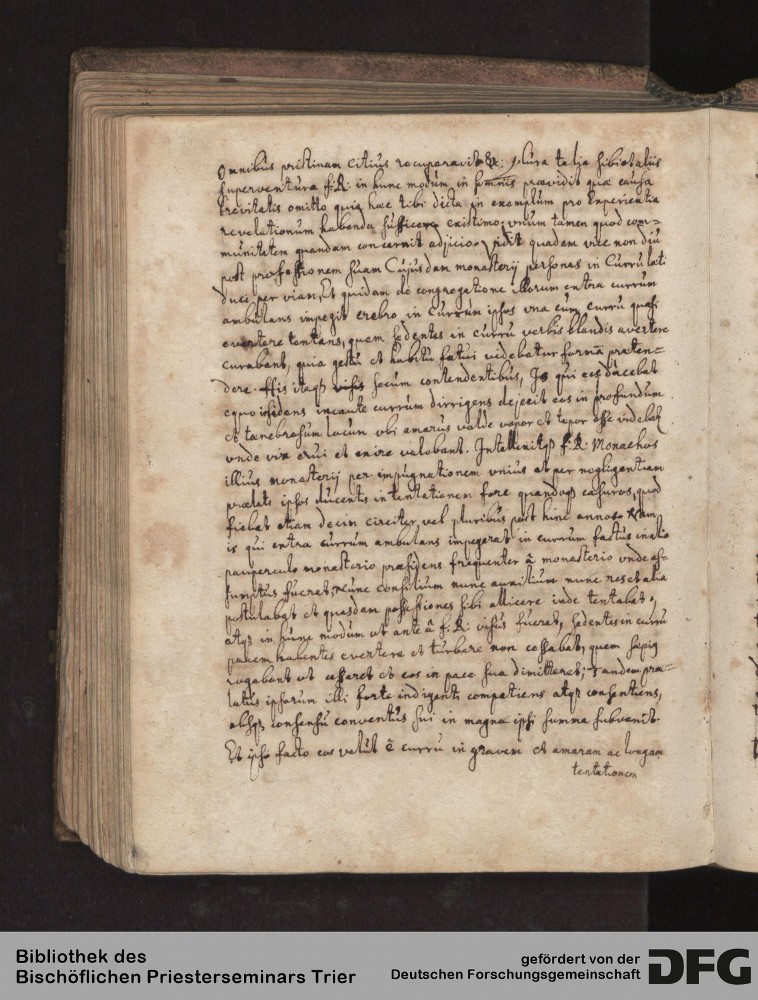 Omnibus pristinam citius recuperavit &c: plura talia sibi et aliis
superventura f: R: in hunc modum in somnis praevidit quae causa
brevitatis omitto quia haec tibi dicta in exemplum pro experientia
revelationum habenda sufficere existimo, unum tamen quod com-
munitatem quandam concernit adjicio, vidit quadam vice non diu
post professionem suam Cujusdam monasterij personas in Curru lati
duci per viam, Et quidam de congregatione illorum extra currum
ambulans impegit crebro in Currum ipsos una cum curru quasi
evertere tentans, quem sedentes in curru verbis blandis avertere
curabant, quia gestu et habitu fatui videbatur formã praeten-
dere. His itaqz secum contendentibus, Is qui eos ducebat
equo insidens incaute currum dirrigens dejecit eos in profundum
et tenebrosum lacum ubi amarus valde vapor et tepor esse videbatr
unde vix erui et exire valebant. Intellexitqz f: R: Monachos
illius monasterij per impugnationem unius et per negligentiam
praelati ipsos ducentis in tentationem fore quandoqz casuros, quod
fiebat etiam decem circiter vel pluribus post hinc annos. Nam
is qui extra currum ambulans impegerat in currum factus
pauperculo monasterio praesidens frequenter â monasterio unde as-
sumptus fuerat, nunc consilium nunc auxilium nunc res et alia
postulabat et quasdam possessiones sibi allicere inde tentabat,
atqz in hunc modum ut ante â f: R: visus fuerat, sedentes in curru
pacem habentes evertere et turbare non cessabat, quem saepius
rogabant ut cessaret et eos in pace sua dimitteret; tandem prae-
latus ipsorum illi forte indigenti compatiens atqz consentiens,
absqz consensu conventus sui in magna ipsi summa subvenit.
Et ipso facto eos velut è curru in gravem et amaram ac longam
tentationem
Bibliothek des
Bischöflichen Priesterseminars Trier
gefördert von der
Deutschen Forschungsgemeinschaft
DFG